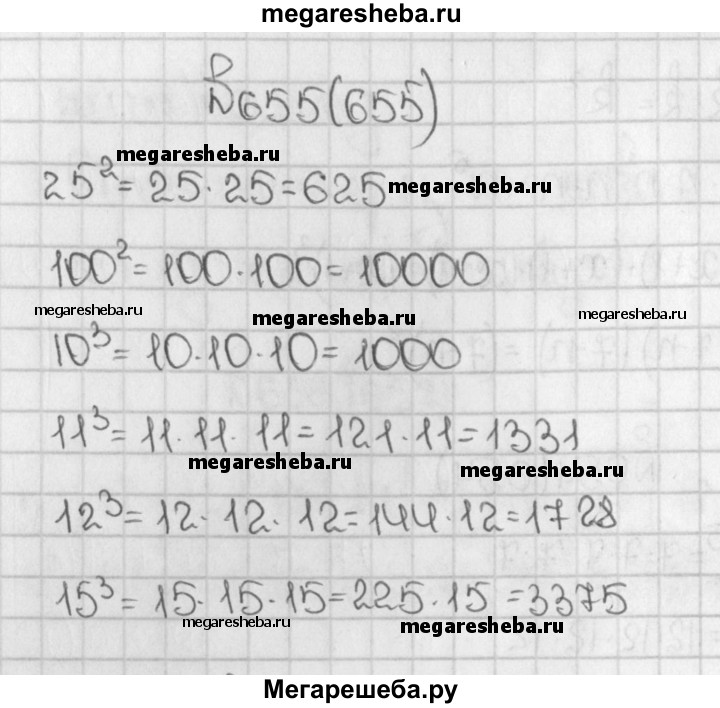 megaresheba.ru
№655(655)
megaresheba.ru
25² = 25 · 25 = 625 megaresheba.ru
100² = 100 · 100 = 10000
megaresheba.ru megaresheba.ru
10³ = 10 · 10 · 10 = 1000
11³ = 11 · 11 · 11 = 121 · 11 = 1331
megaresheba.ru megaresheba.ru
12³ = 12 · 12 · 12 = 144 · 12 = 1728
15³ = 15 · 15 · 15 = 225 · 15 = 3375
megaresheba.ru megaresheba.ru
Мегарешеба.ру